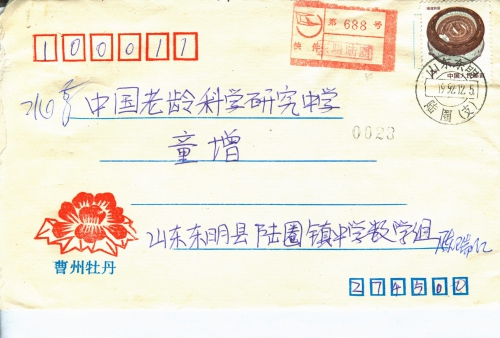 100011
第 688 号
快件
山东东明
中国人民邮政
1992.12.5
陆圈(支)
北京
中国老龄科学研究中学
童增
0023
山东东明县陆圈镇中学数学组
陈瑞仁
曹州牡丹
274500